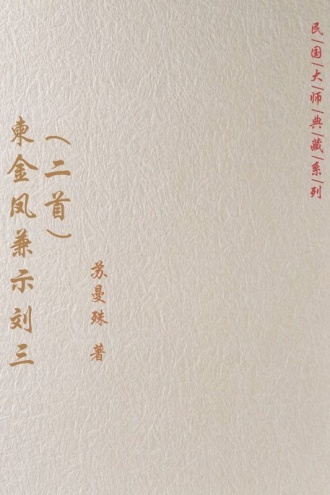 民|国|大|师|典|藏|系|列
柬金凤兼示刘三
（二首）
苏曼殊 著